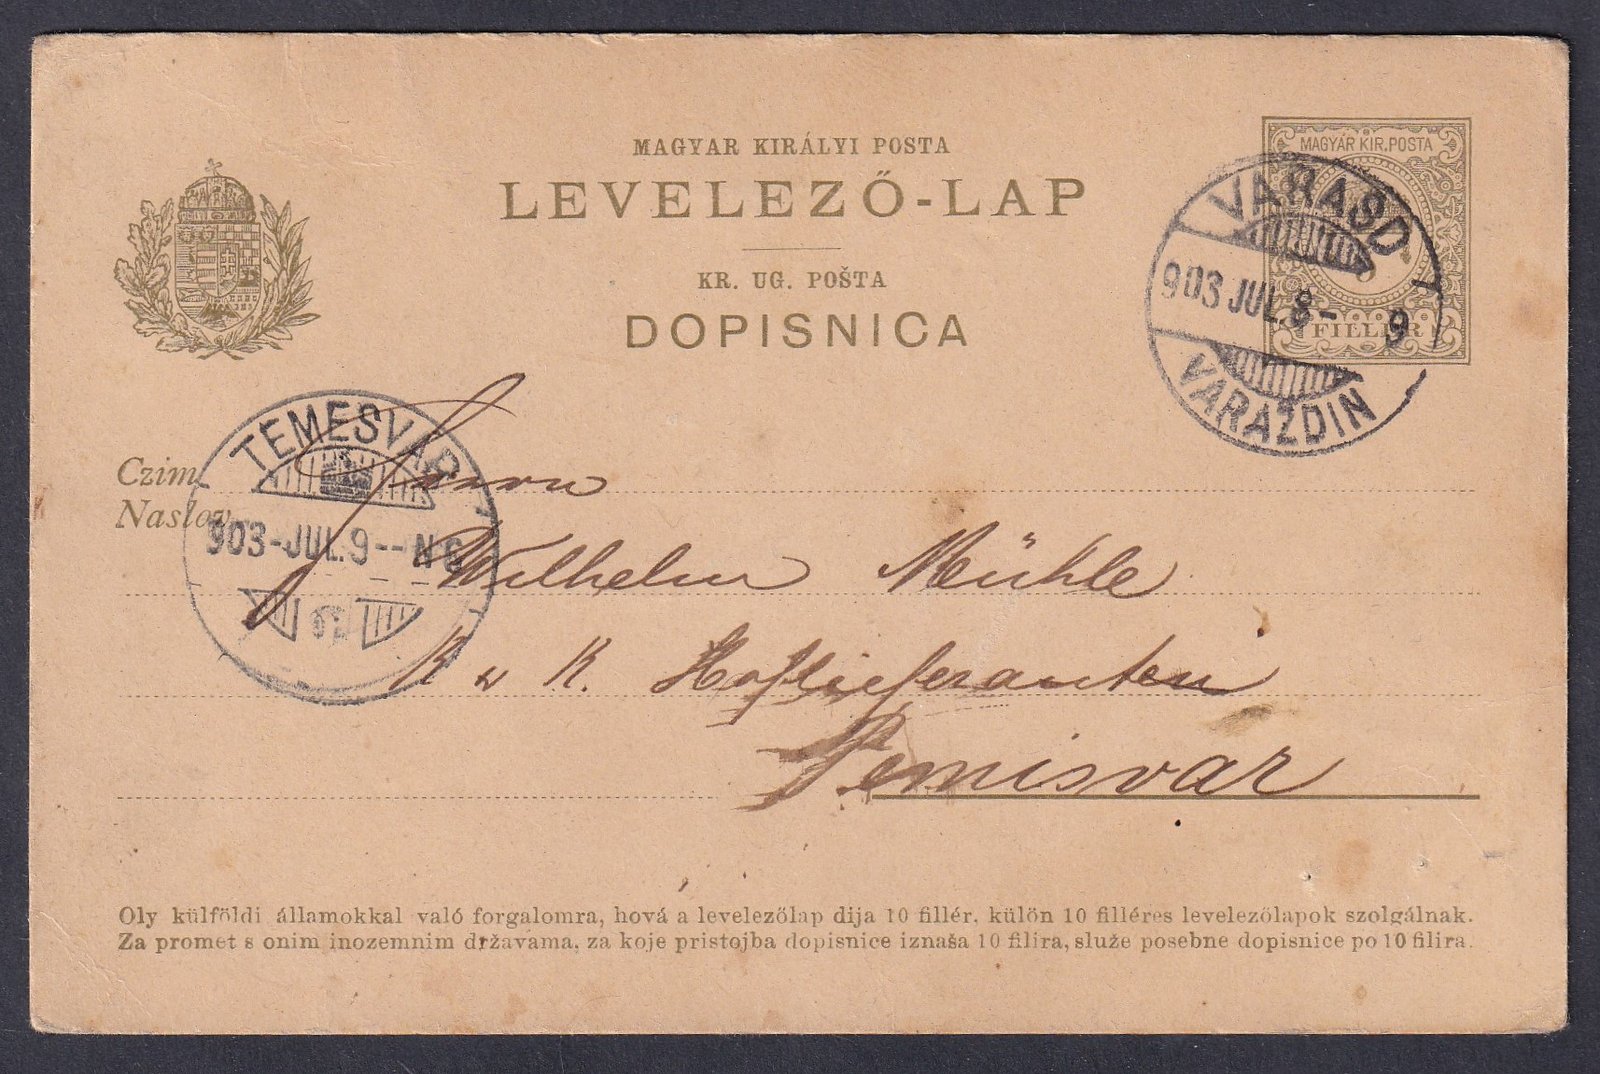 MAGYAR KIRÁLYI POSTA
LEVELEZŐ-LAP
KR. UG. POŠTA
DOPISNICA
MAGYAR KIR. POSTA
FILLÉR
VARASD
903 JUL. 8 - 9
VARAŽDIN
TEMESVÁR
903-JUL. 9--N6
Czim
Naslov
Herrn
Wilhelm Mühle
K u K. Hoflieferanten
Temisvar
Oly külföldi államokkal való forgalomra, hová a levelezőlap dija 10 fillér, külön 10 filléres levelezőlapok szolgálnak.
Za promet s onim inozemnim državama, za koje pristojba dopisnice iznaša 10 filira, služe posebne dopisnice po 10 filira.